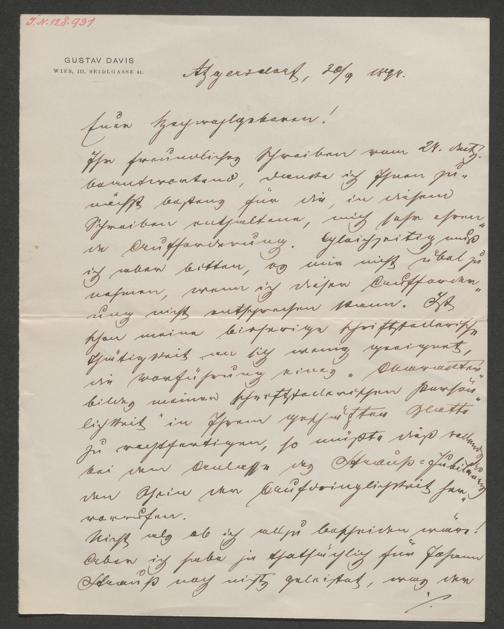 I.N. 128.931
GUSTAV DAVIS
WIEN, III. SEIDLGASSE 41.
Atzgersdorf, 30/9 1894.
Euer Hochwohlgeboren!
Ihr freundliches Schreiben vom 24. dMts.
beantwortend, danke ich Ihnen zu-
nächst bestens für die, in diesem
Schreiben enthaltene, mich sehr ehren-
de Aufforderung. Gleichzeitig muß
ich aber bitten, es mir nicht übel zu
nehmen, wenn ich dieser Aufforder-
ung nicht entsprechen kann. Ist
schon meine bisherige schriftstellerische
Thätigkeit an sich wenig geeignet,
die Vorführung eines „Charakter-
bildes meiner schriftstellerischen Persön-
lichkeit" in Ihrem geschätzten Blatte
zu rechtfertigen, so müßte dieß
bei dem Anlasse des Strauß-Jubiläums
den Schein der Aufdringlichkeit her-
vorrufen.
Nicht als ob ich allzu bescheiden wäre!
Aber ich habe ja thatsächlich für Johann
Strauß noch nichts geleistet, was der
./.